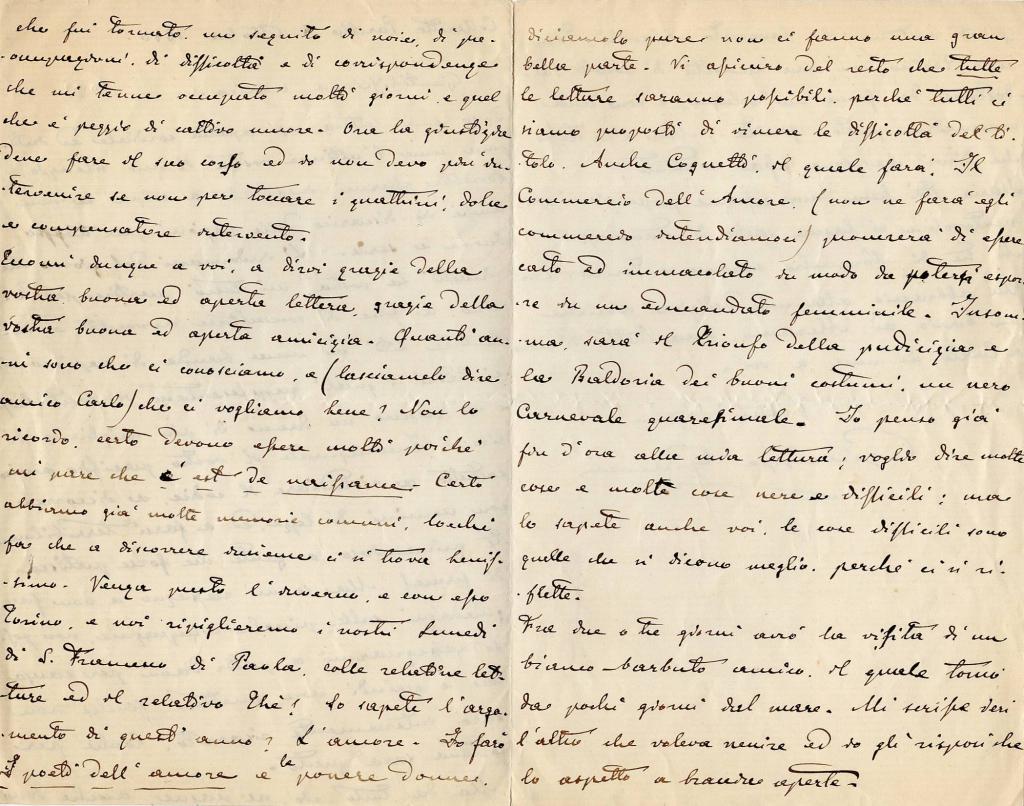 che fui tornato, un seguito di noie, di pre-
-occupazioni, di difficoltà e di corrispondenze
che mi tenne occupato molti giorni, e quel
che è peggio di cattivo umore. Ora la giustizia
deve fare il suo corso ed io non devo più in-
-tervenire se non per toccare i quattrini, dolce
e compensatore intervento.
Eccomi dunque a voi, a dirvi grazie della
vostra buona ed aperta lettera, grazie della
vostra buona ed aperta amicizia. Quanti an-
-ni sono che ci conosciamo, e (lasciamelo dire
amico Carlo) che ci vogliamo bene? Non lo
ricordo, certo devono essere molti poiché
mi pare che c'est de naissance. Certo
abbiamo già molte memorie comuni, locché
fa che a discorrere insieme ci si trova benis-
-simo. Venga presto l'inverno, e con esso
Torino, e noi ripiglieremo i nostri Lunedì
di S. Francesco di Paola, colle relative let-
-ture ed il relativo Thè! Lo sapete l'argo-
-mento di quest'anno? L'amore. Io farò
I poeti dell'amore e le povere donne,
diciamolo pure, non ci fanno una gran
bella parte. Vi assicuro del resto che tutte
le letture saranno possibili, perché tutti ci
siamo proposti di vincere le difficoltà del ti-
tolo. Anche Cognetti, il quale farà, Il
Commercio dell'Amore, (non ne farà egli
commercio intendiamoci) promise di essere
casto ed immacolato in modo da potersi espor-
re in un educandato femminile. Insom-
-ma, sarà il Trionfo della pudicizia e
la Baldoria dei buoni costumi, un vero
Carnevale quaresimale. Io penso già
fin d'ora alla mia lettura; voglio dire molte
cose e molte cose vere e difficili; ma
lo sapete anche voi, le cose difficili sono
quelle che si dicono meglio, perché ci si ri-
-flette.
Fra due o tre giorni avrò la visita di un
bianco barbuto amico, il quale tornò
da pochi giorni dal mare. Mi scrisse ieri
l'altro che voleva venire ed io gli risposi che
lo aspetto a braccia aperte.